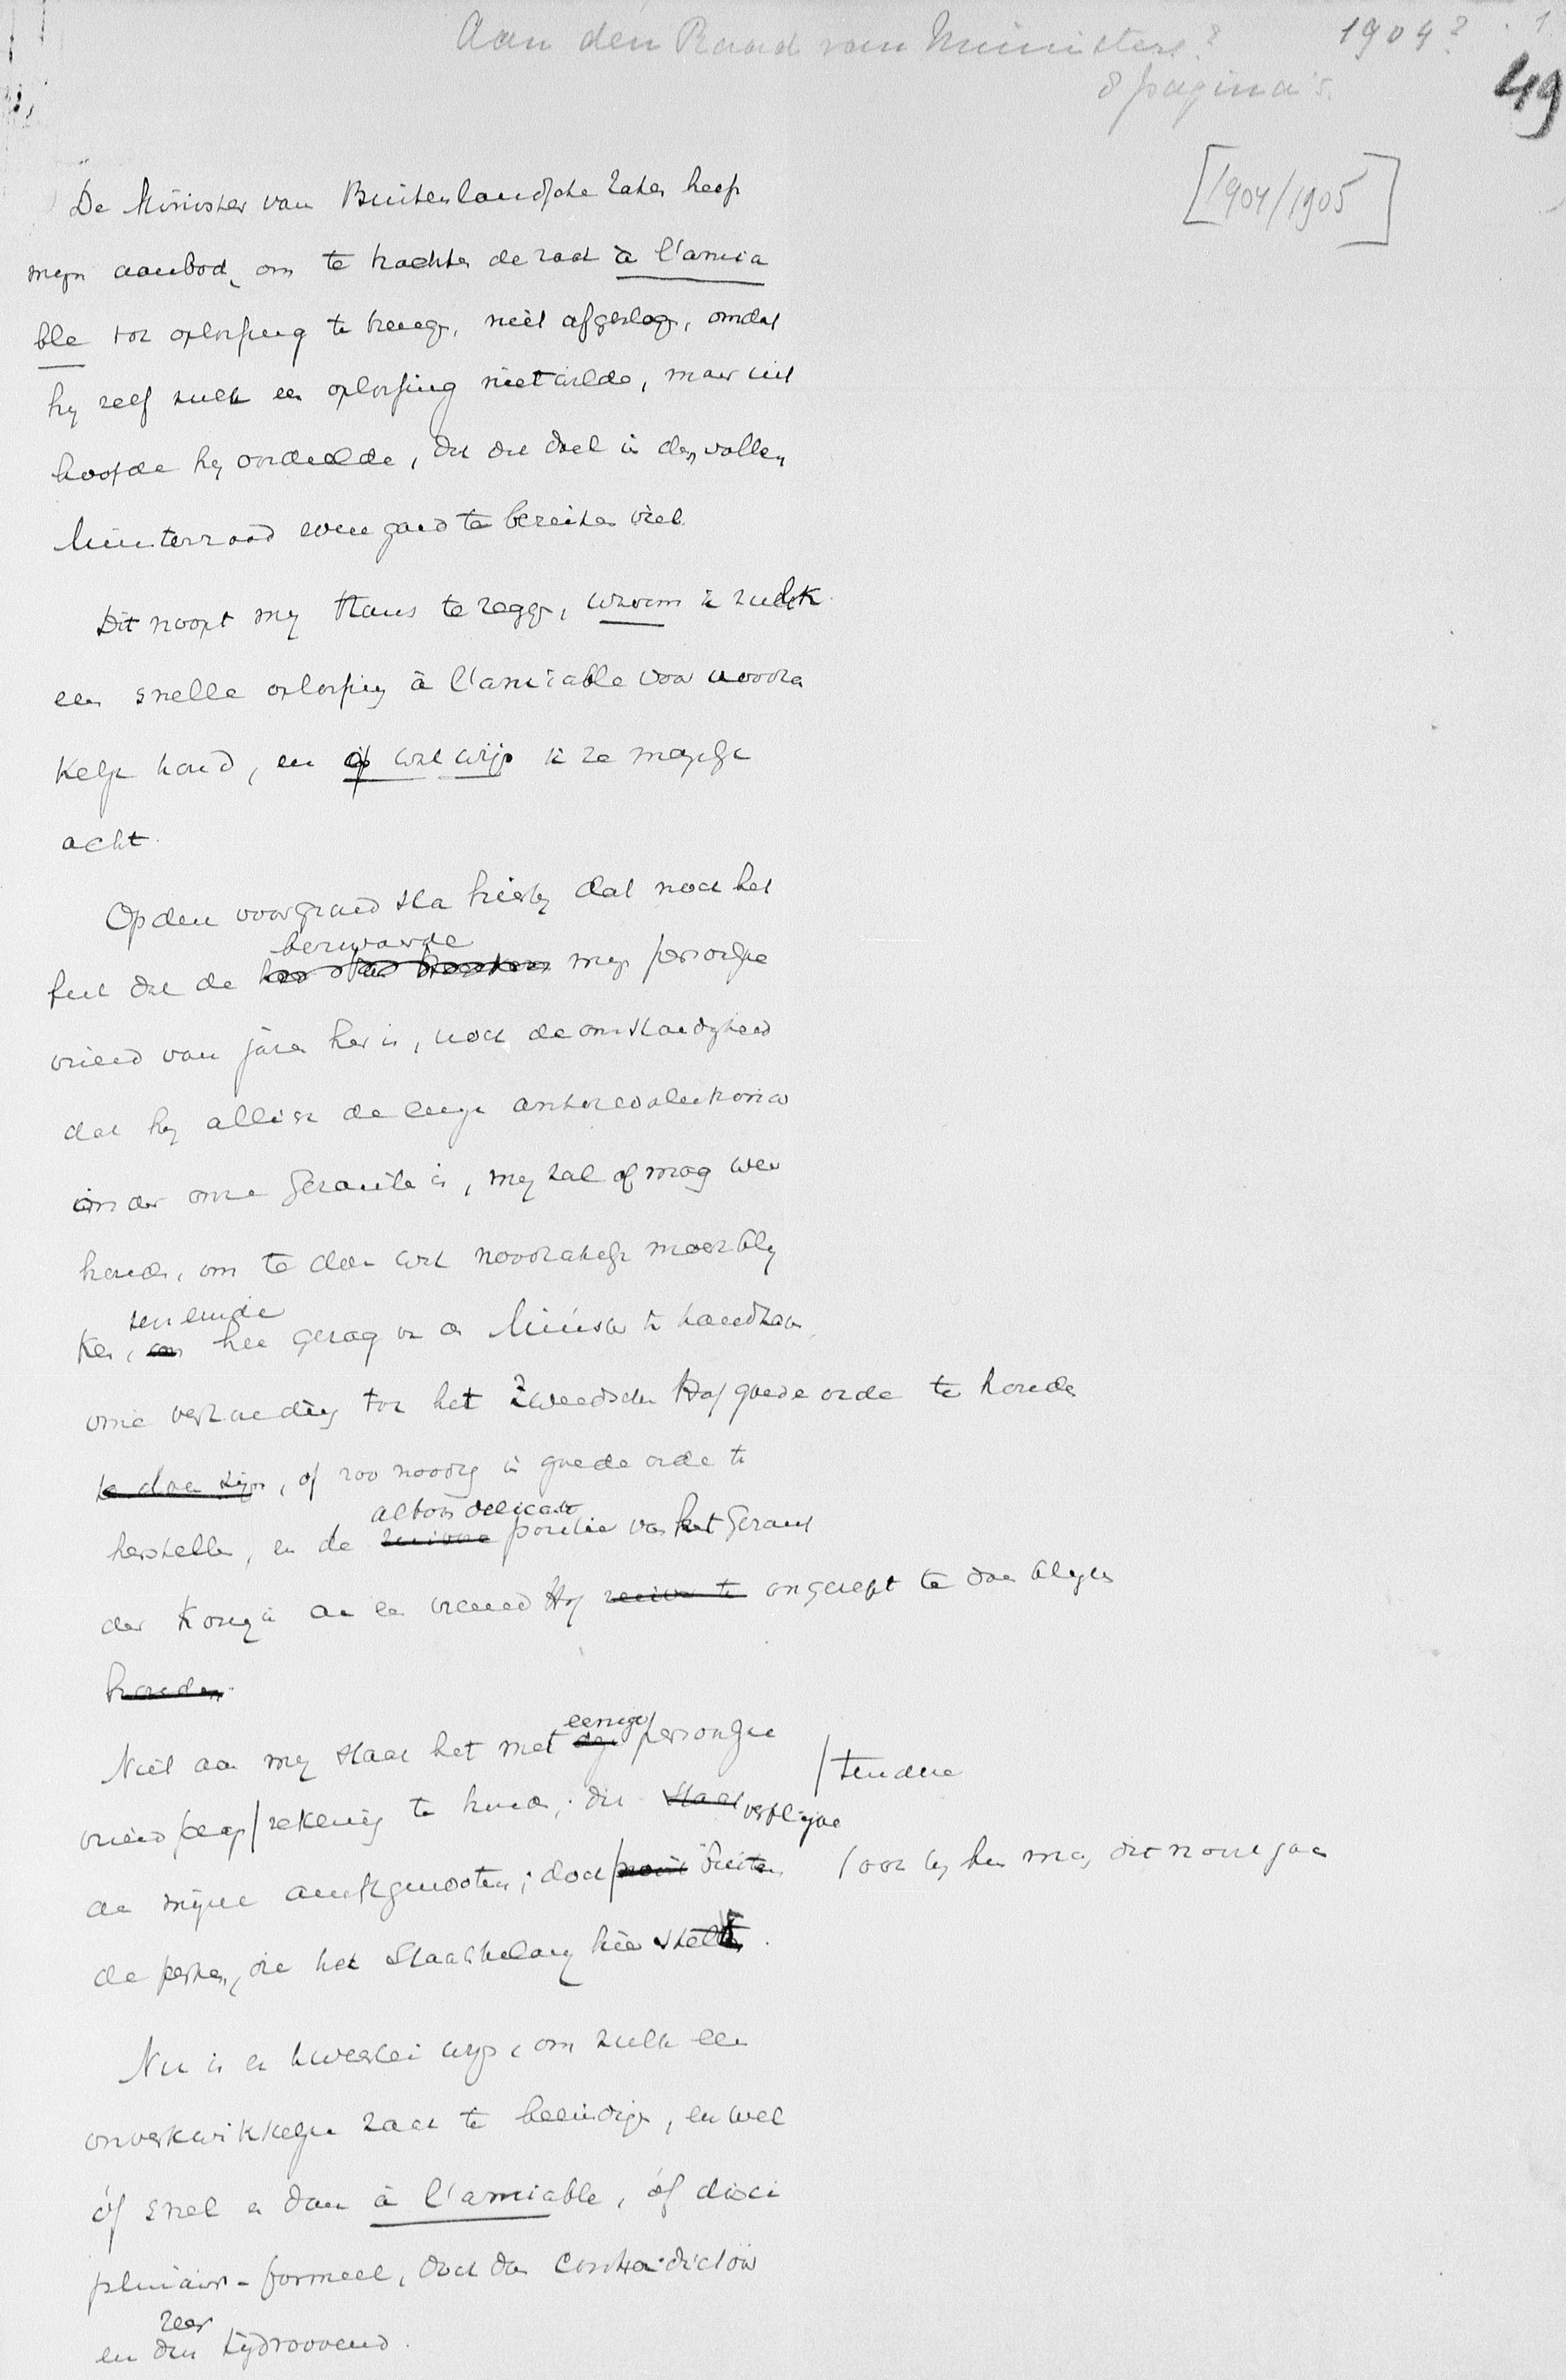 Aan den Raad van Ministers? 1904? 1
8 pagina's.
49
[1904/1905]
De Minister van Buitenlandsche Zaken heeft
mijn aanbod, om te trachten de zaak à l'amia
ble tot oplossing te brengen, niet afgeslagen, omdat
hij zelf zulk een oplossing niet wilde, maar uit
hoofde hij oordeelde, dat dit doel in den vollen
Ministerraad even goed te bereiken viel.
Dit noopt mij thans te zeggen, waarom ik zulk
een snelle oplossing à l'amiable voor noodza
kelijk houd, en op wat wijs ik ze mogelijk
acht.
Op den voorgrond sta hierbij dat noch het
bezwaarde
feit dat de mijn persoonlijke
vriend van jaren her is, noch de omstandigheid
dat hij allicht de eenige antirevolutionair
onder onze Gezanten is, mij zal of mag weer
houden, om te doen wat noodzakelijk mocht blij
ten einde
ken, om het gezag van den Minister te handhaven,
onze verhouding tot het Zweedsche Hof goede orde te houden
te doen zijn, of zoo noodig in goede orde te
altoos delicate
herstellen, en de positie van het Gezant
der Koningin aan een vreemd Hof zuiver te ongerept te doen blijven
houden.
Niet aan mij staat het met eenige persoonlijke
vriendschap rekening te houden; dit staat verblijve / tendere
aan mijne ambtgenooten; doch buiten / ook bij hen mag dit nooit gaan
de perken, die het Staatsbelang hier stelt.
Nu is er tweeërlei wijs, om zulk een
onverkwikkelijke zaak te beëindigen, en wel
óf snel en dan à l'amiable, óf disci
plinair-formeel, doch dan contradictoir
zeer
en dus tijdroovend.